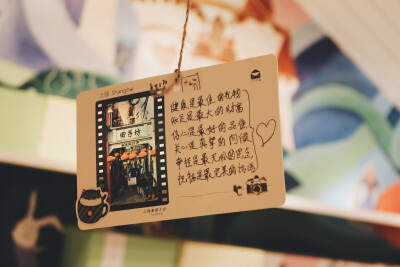 上海 Shanghai
田子坊
健康是最佳的礼物
知足是最大的财富
信任是最好的品德
关心是真挚的问候
牵挂是最无私的思念
祝福是最完美的话语